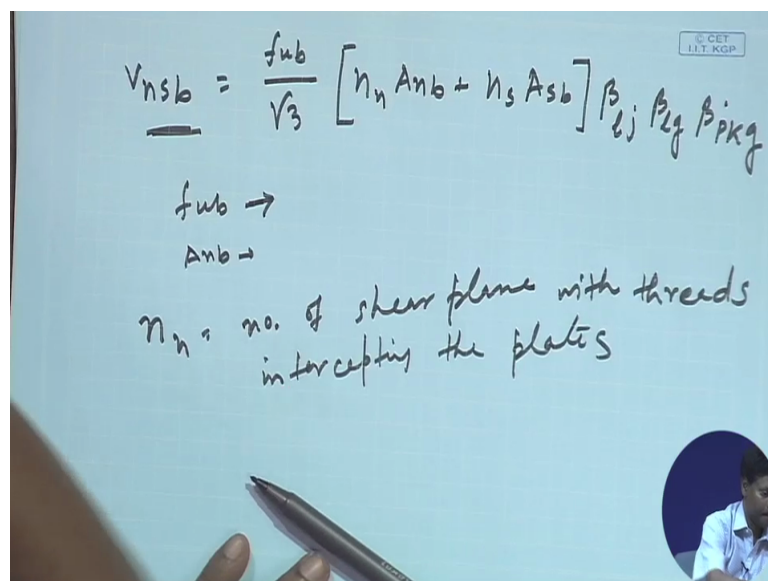 © CET
I.I.T. KGP
Vnsb = fub/√3 [nn Anb + ns Asb] βlj βlg βpkg
fub →
Anb →
nn = no. of shear plane with threads
intercepting the plates